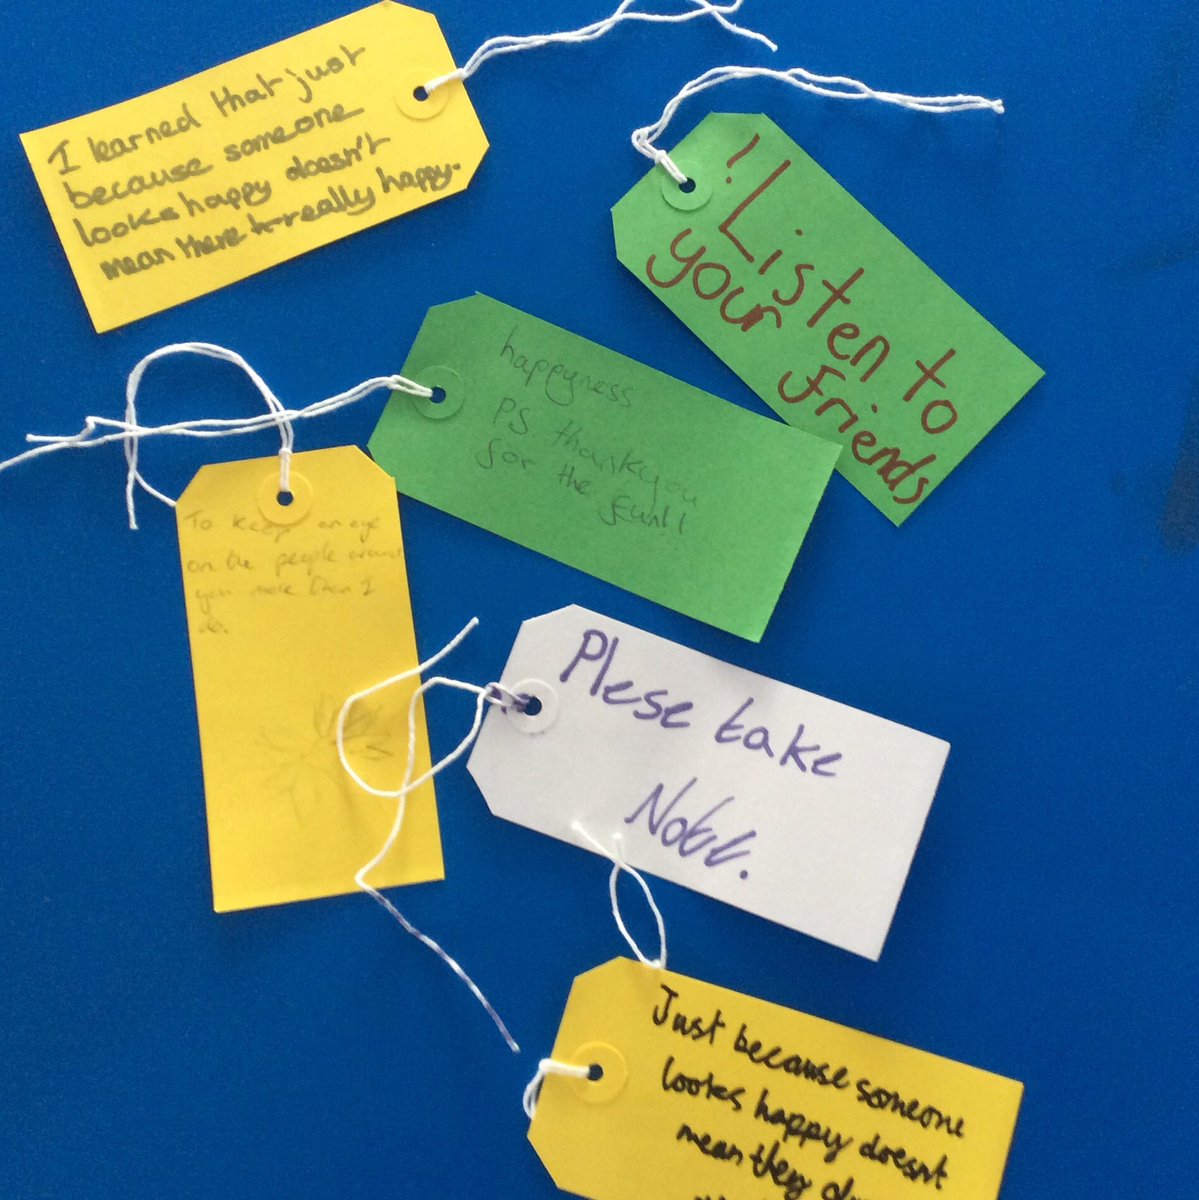 I learned that just
because someone
looks happy doesn't
mean there really happy.
! Listen to
your
Friends
happyness
PS thankyou
for the fun!!
To keep an eye
on the people around
you more than I
do.
Plese take
Just because someone
looks happy doesnt
mean they